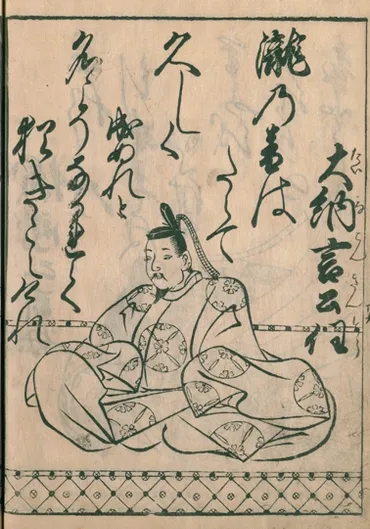 大納言公任
瀧乃音は
たえて
久しく
成ぬれと
名こそなかれて
猶きこえけれ